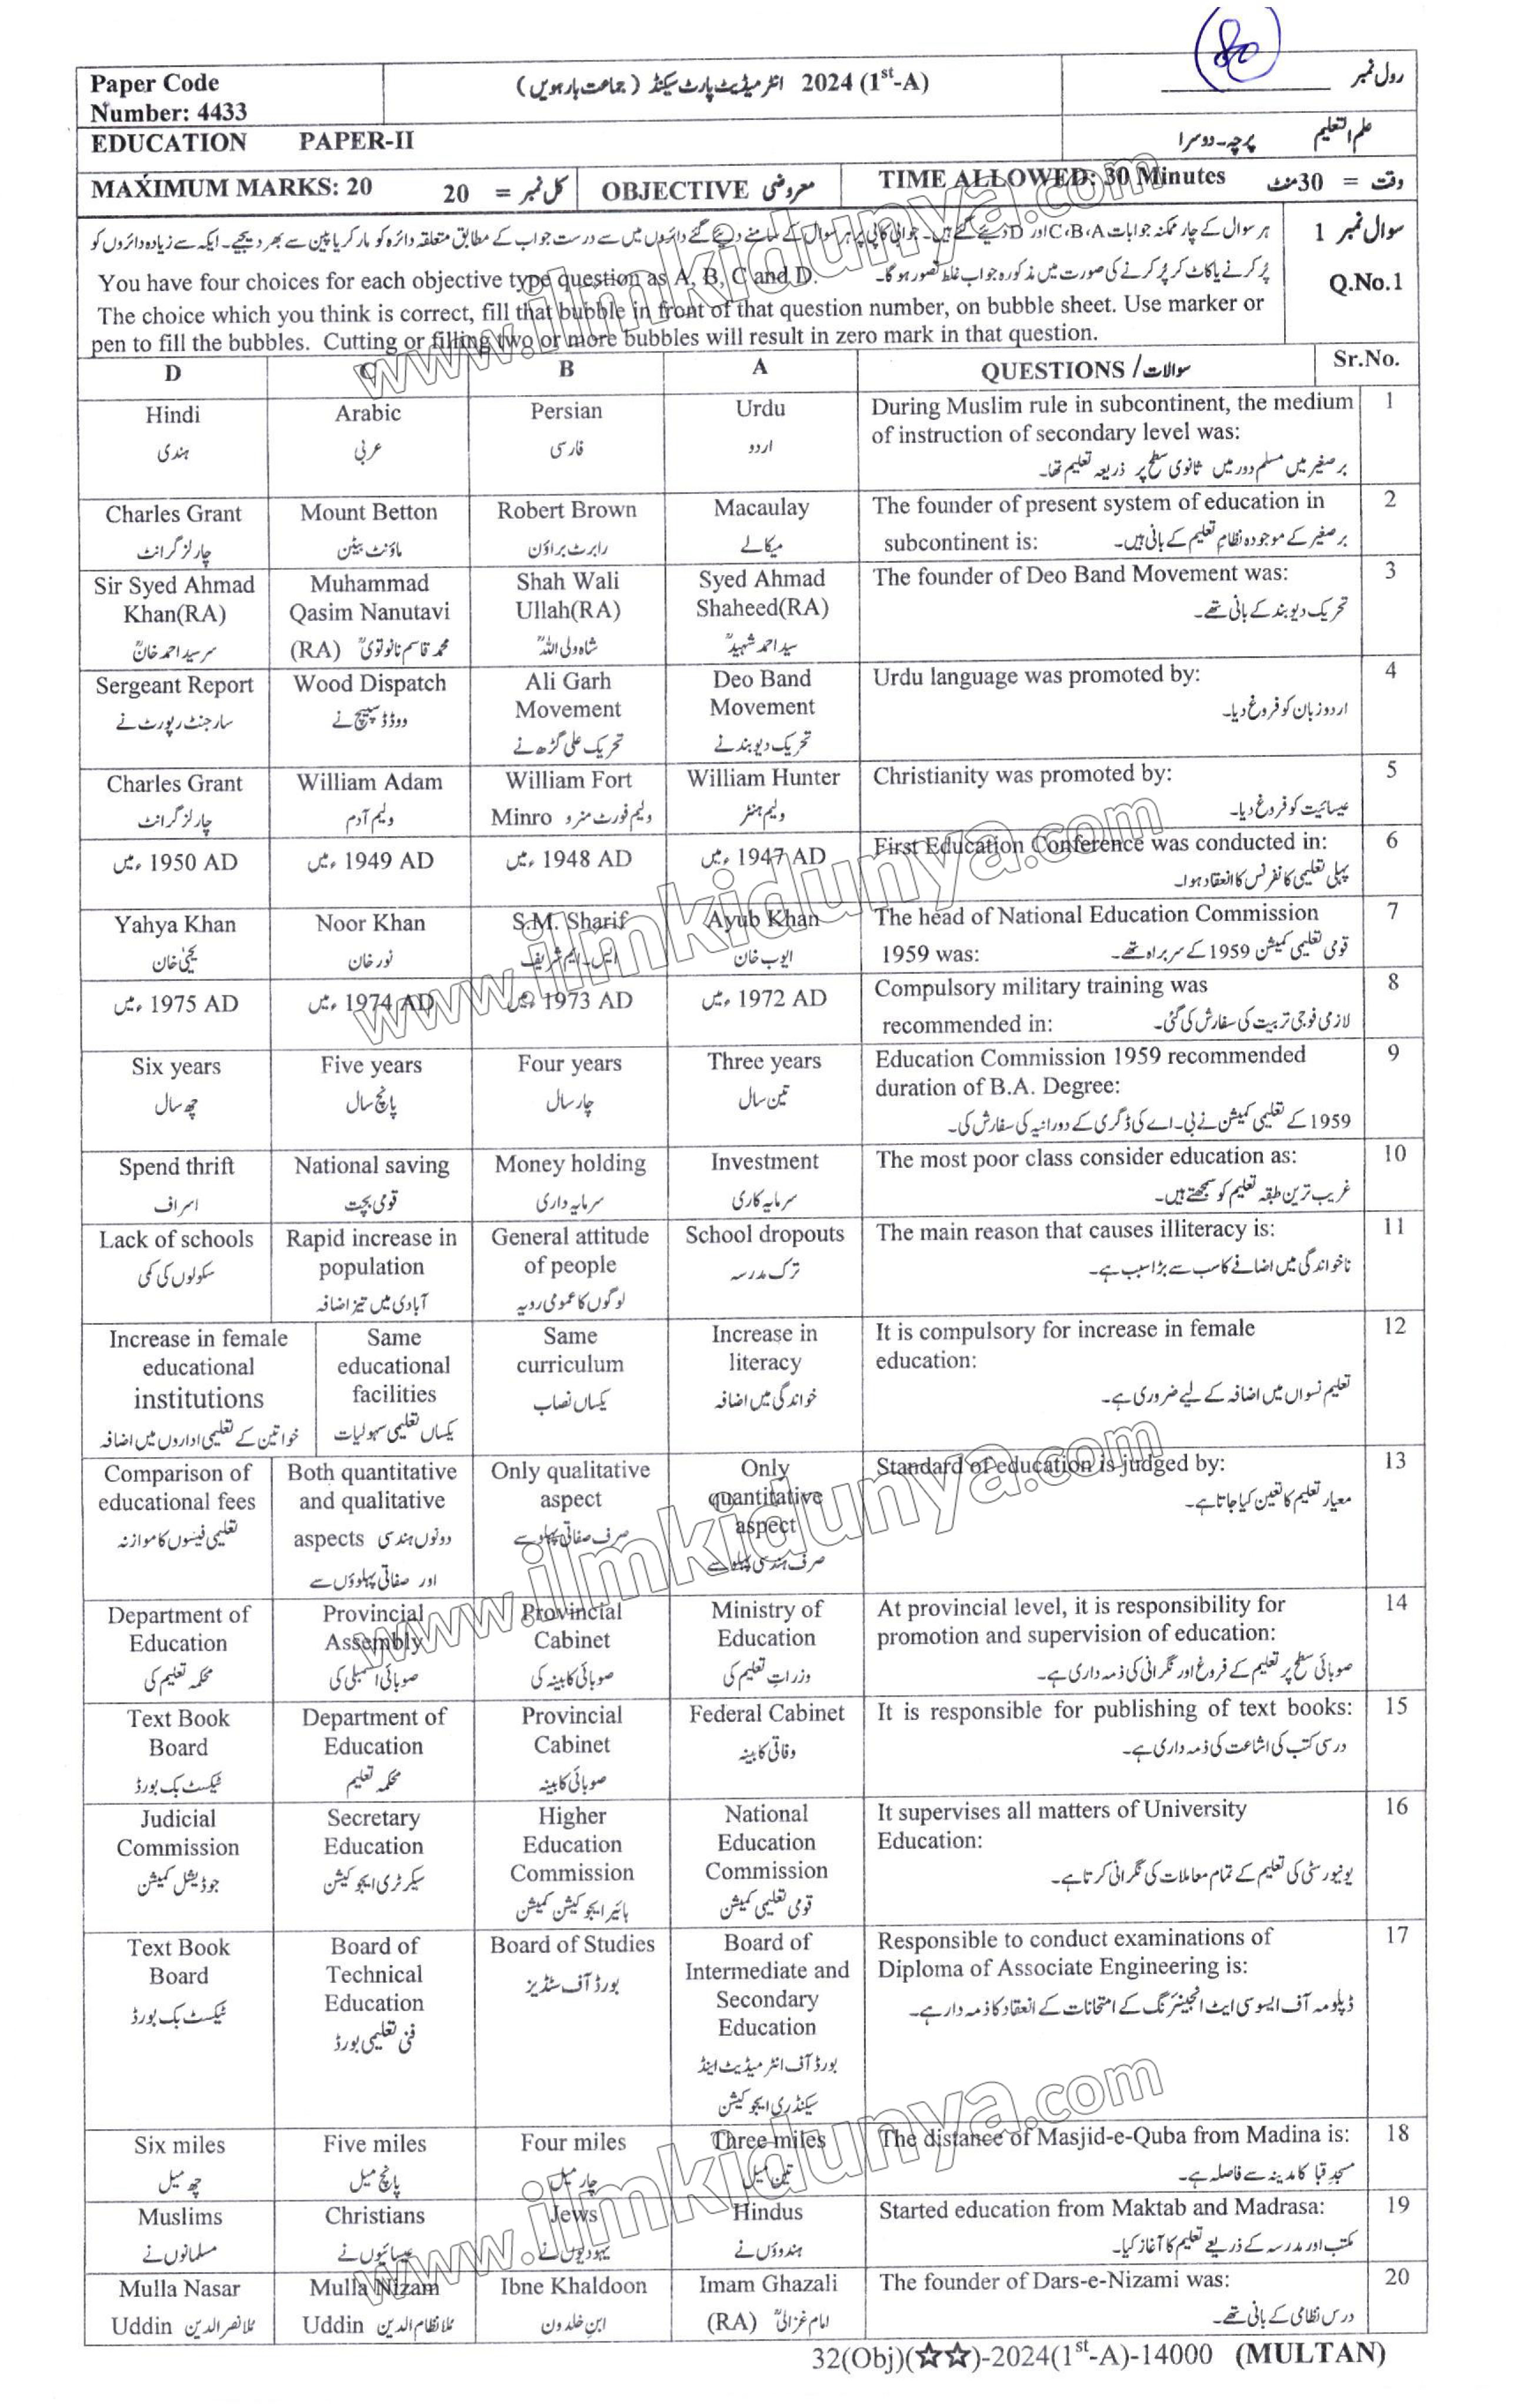 80
Paper Code
Number: 4433
2024 (1st-A) انٹرمیڈیٹ پارٹ سیکنڈ (جماعت بارہویں)
رول نمبر
EDUCATION PAPER-II
علم التعلیم پرچہ۔دوسرا
MAXIMUM MARKS: 20 کل نمبر = 20
OBJECTIVE معروضی
TIME ALLOWED: 30 Minutes وقت = 30منٹ
سوال نمبر 1 ہر سوال کے چار ممکنہ جوابات C،B،A اور D دئیے گئے ہیں۔ جوابی کاپی پر ہر سوال کے سامنے دیئے گئے دائروں میں سے درست جواب کے مطابق متعلقہ دائرہ کو مارکر یا پین سے بھر دیجیے۔ ایک سے زیادہ دائروں کو
Q.No.1 پُر کرنے یا کاٹ کر پُر کرنے کی صورت میں مذکورہ جواب غلط تصور ہو گا۔
You have four choices for each objective type question as A, B, C and D.
The choice which you think is correct, fill that bubble in front of that question number, on bubble sheet. Use marker or
pen to fill the bubbles. Cutting or filling two or more bubbles will result in zero mark in that question.
D C B A QUESTIONS / سوالات Sr.No.
Hindi Arabic Persian Urdu During Muslim rule in subcontinent, the medium 1
of instruction of secondary level was:
ہندی عربی فارسی اردو برصغیر میں مسلم دور میں ثانوی سطح پر ذریعہ تعلیم تھا۔
Charles Grant Mount Betton Robert Brown Macaulay The founder of present system of education in 2
subcontinent is: برصغیر کے موجودہ نظامِ تعلیم کے بانی ہیں۔
چارلز گرانٹ ماؤنٹ بیٹن رابرٹ براؤن میکالے
Sir Syed Ahmad Muhammad Shah Wali Syed Ahmad The founder of Deo Band Movement was: 3
Khan(RA) Qasim Nanutavi Ullah(RA) Shaheed(RA) تحریک دیوبند کے بانی تھے۔
سرسید احمد خانؒ (RA) محمد قاسم نانوتویؒ شاہ ولی اللہؒ سید احمد شہیدؒ
Sergeant Report Wood Dispatch Ali Garh Deo Band Urdu language was promoted by: 4
Movement Movement اردو زبان کو فروغ دیا۔
سارجنٹ رپورٹ نے ووڈ ڈسپیچ نے تحریک علی گڑھ نے تحریک دیوبند نے
Charles Grant William Adam William Fort William Hunter Christianity was promoted by: 5
چارلز گرانٹ ولیم آدم Minro ولیم فورٹ منرو ولیم ہنٹر عیسائیت کو فروغ دیا۔
1950 AD ء میں 1949 AD ء میں 1948 AD ء میں 1947 AD ء میں First Education Conference was conducted in: 6
پہلی تعلیمی کانفرنس کا انعقاد ہوا۔
Yahya Khan Noor Khan S.M. Sharif Ayub Khan The head of National Education Commission 7
1959 was: قومی تعلیمی کمیشن 1959 کے سربراہ تھے۔
یحییٰ خان نور خان ایس۔ایم شریف ایوب خان
1975 AD ء میں 1974 AD ء میں 1973 AD ء میں 1972 AD ء میں Compulsory military training was 8
recommended in: لازمی فوجی تربیت کی سفارش کی گئی۔
Six years Five years Four years Three years Education Commission 1959 recommended 9
duration of B.A. Degree:
چھ سال پانچ سال چار سال تین سال 1959 کے تعلیمی کمیشن نے بی۔اے کی ڈگری کے دورانیہ کی سفارش کی۔
Spend thrift National saving Money holding Investment The most poor class consider education as: 10
اسراف قومی بچت سرمایہ داری سرمایہ کاری غریب ترین طبقہ تعلیم کو سمجھتے ہیں۔
Lack of schools Rapid increase in General attitude School dropouts The main reason that causes illiteracy is: 11
population of people
سکولوں کی کمی آبادی میں تیز اضافہ لوگوں کا عمومی رویہ ترک مدرسہ ناخواندگی میں اضافے کا سب سے بڑا سبب ہے۔
Increase in female Same Same Increase in It is compulsory for increase in female 12
educational educational curriculum literacy education:
institutions facilities
خواتین کے تعلیمی اداروں میں اضافہ یکساں تعلیمی سہولیات یکساں نصاب خواندگی میں اضافہ تعلیم نسواں میں اضافہ کے لیے ضروری ہے۔
Comparison of Both quantitative Only qualitative Only Standard of education is judged by: 13
educational fees and qualitative aspect quantitative معیار تعلیم کا تعین کیا جاتا ہے۔
تعلیمی فیسوں کا موازنہ aspects دونوں ہندسی صرف صفاتی پہلو سے aspect
اور صفاتی پہلوؤں سے صرف ہندسی پہلو سے
Department of Provincial Provincial Ministry of At provincial level, it is responsibility for 14
Education Assembly Cabinet Education promotion and supervision of education:
محکمہ تعلیم کی صوبائی اسمبلی کی صوبائی کابینہ کی وزارتِ تعلیم کی صوبائی سطح پر تعلیم کے فروغ اور نگرانی کی ذمہ داری ہے۔
Text Book Department of Provincial Federal Cabinet It is responsible for publishing of text books: 15
Board Education Cabinet وفاقی کابینہ درسی کتب کی اشاعت کی ذمہ داری ہے۔
ٹیکسٹ بک بورڈ محکمہ تعلیم صوبائی کابینہ
Judicial Secretary Higher National It supervises all matters of University 16
Commission Education Education Education Education:
Commission Commission
جوڈیشل کمیشن سیکرٹری ایجوکیشن ہائیر ایجوکیشن کمیشن قومی تعلیمی کمیشن یونیورسٹی کی تعلیم کے تمام معاملات کی نگرانی کرتا ہے۔
Text Book Board of Board of Studies Board of Responsible to conduct examinations of 17
Board Technical بورڈ آف سٹڈیز Intermediate and Diploma of Associate Engineering is:
ٹیکسٹ بک بورڈ Education Secondary ڈپلومہ آف ایسوسی ایٹ انجینئرنگ کے امتحانات کے انعقاد کا ذمہ دار ہے۔
فنی تعلیمی بورڈ Education
بورڈ آف انٹرمیڈیٹ اینڈ
سیکنڈری ایجوکیشن
Six miles Five miles Four miles Three miles The distance of Masjid-e-Quba from Madina is: 18
چھ میل پانچ میل چار میل تین میل مسجدِ قبا کا مدینہ سے فاصلہ ہے۔
Muslims Christians Jews Hindus Started education from Maktab and Madrasa: 19
مسلمانوں نے عیسائیوں نے یہودیوں نے ہندوؤں نے مکتب اور مدرسہ کے ذریعے تعلیم کا آغاز کیا۔
Mulla Nasar Mulla Nizam Ibne Khaldoon Imam Ghazali The founder of Dars-e-Nizami was: 20
Uddin ملا نصر الدین Uddin ملا نظام الدین ابنِ خلدون (RA) امام غزالیؒ درس نظامی کے بانی تھے۔
32(Obj)(☆☆)-2024(1st-A)-14000 (MULTAN)
www.ilmkidunya.com
www.ilmkidunya.com
www.ilmkidunya.com
www.ilmkidunya.com